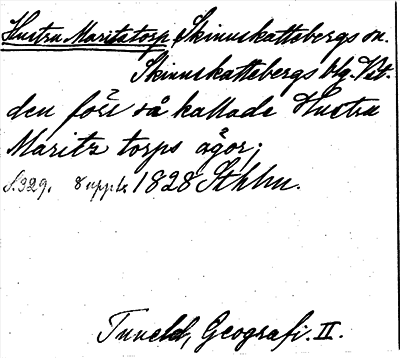 Hustru Maritatorp, Skinnskattebergs sn.
Skinnskattebergs blg. Vst.
den förr så kallade Hustru
Maritz torps ägor;
S. 329. 8 uppl. 1828 Sthlm.
Tuneld, Geografi. II.